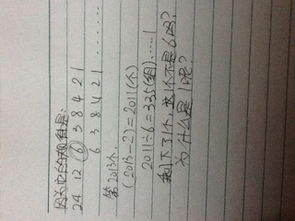 因为它的规律是:
24 12 6 3 8 4 2 1
6 3 8 4 2 1 ......
第2013个.
(2013-2)=2011(个)
2011÷6=335(组)......1
剩下了1个,求1个不是6吗?
为什么是1呢?